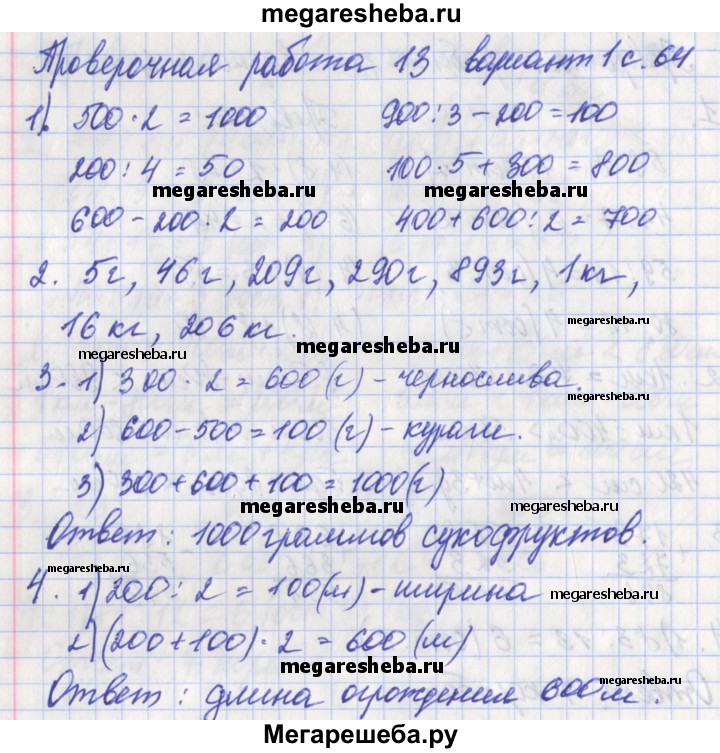 megaresheba.ru
Проверочная работа 13 вариант 1 с. 64
1). 500 · 2 = 1000 900 : 3 - 200 = 100
200 : 4 = 50 100 · 5 + 300 = 800
megaresheba.ru megaresheba.ru
600 - 200 · 2 = 200 400 + 600 : 2 = 700
2. 5 г, 46 г, 209 г, 290 г, 893 г, 1 кг,
16 кг, 206 кг.
megaresheba.ru
megaresheba.ru
megaresheba.ru
3. 1) 300 · 2 = 600 (г) - чернослива.
2) 600 - 500 = 100 (г) - кураги.
3) 300 + 600 + 100 = 1000 (г)
megaresheba.ru megaresheba.ru
Ответ: 1000 граммов сухофруктов.
megaresheba.ru
4. 1) 200 : 2 = 100 (м) - ширина
megaresheba.ru
2) (200 + 100) · 2 = 600 (м)
megaresheba.ru
megaresheba.ru
Ответ: длина ограждения 600 м.
Мегарешеба.ру